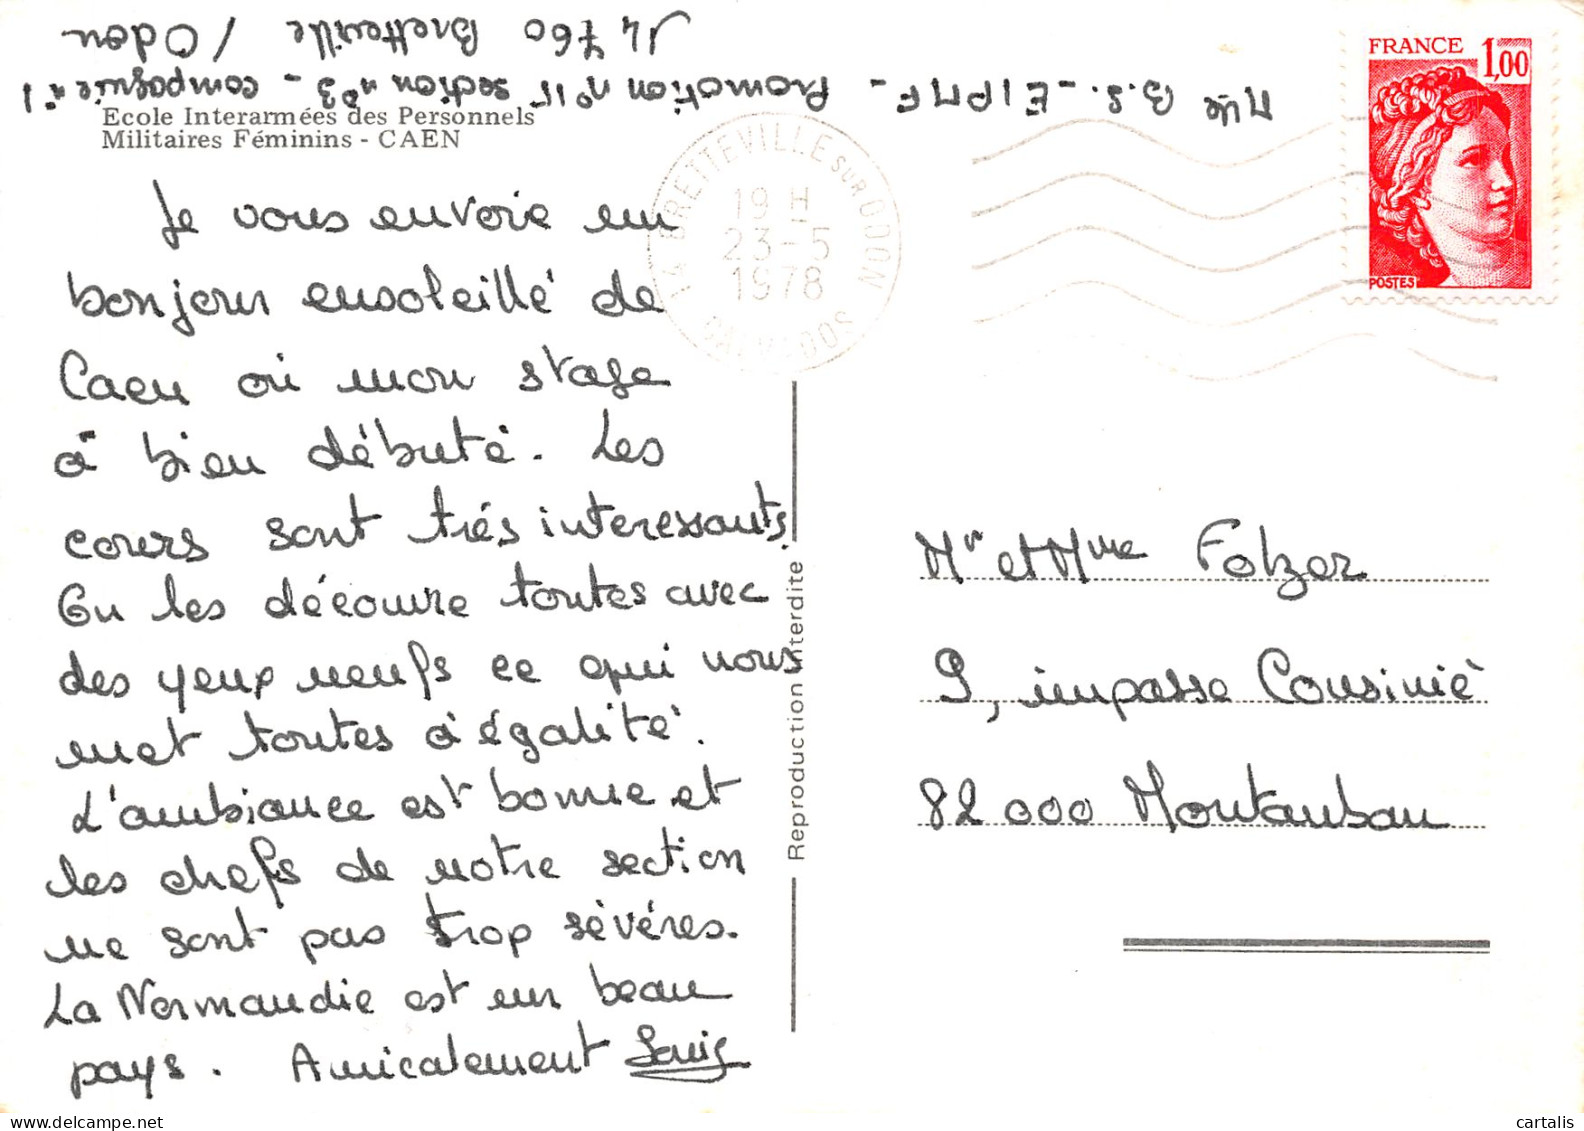 Mlle B.S. - EIPMF - Promotion n°15 section n°3 - compagnie n°1
14 760 Bretteville / Odon
Ecole Interarmées des Personnels
Militaires Féminins - CAEN
Je vous envoie un
bonjour ensoleillé de
Caen où mon stage
à bien débuté. Les
cours sont trés interessants.
On les découvre toutes avec
des yeux neufs ce qui nous
met toutes à égalité.
L'ambiance est bonne et
les chefs de notre section
ne sont pas trop sévéres.
La Normandie est un beau
pays. Amicalement
Reproduction interdite
14 BRETTEVILLE SUR ODON
19 H
23-5
1978
CALVADOS
FRANCE 1,00
POSTES
Mr et Mme Folzer
9, impasse Cousinié
82 000 Montauban
delcampe.net
cartalis